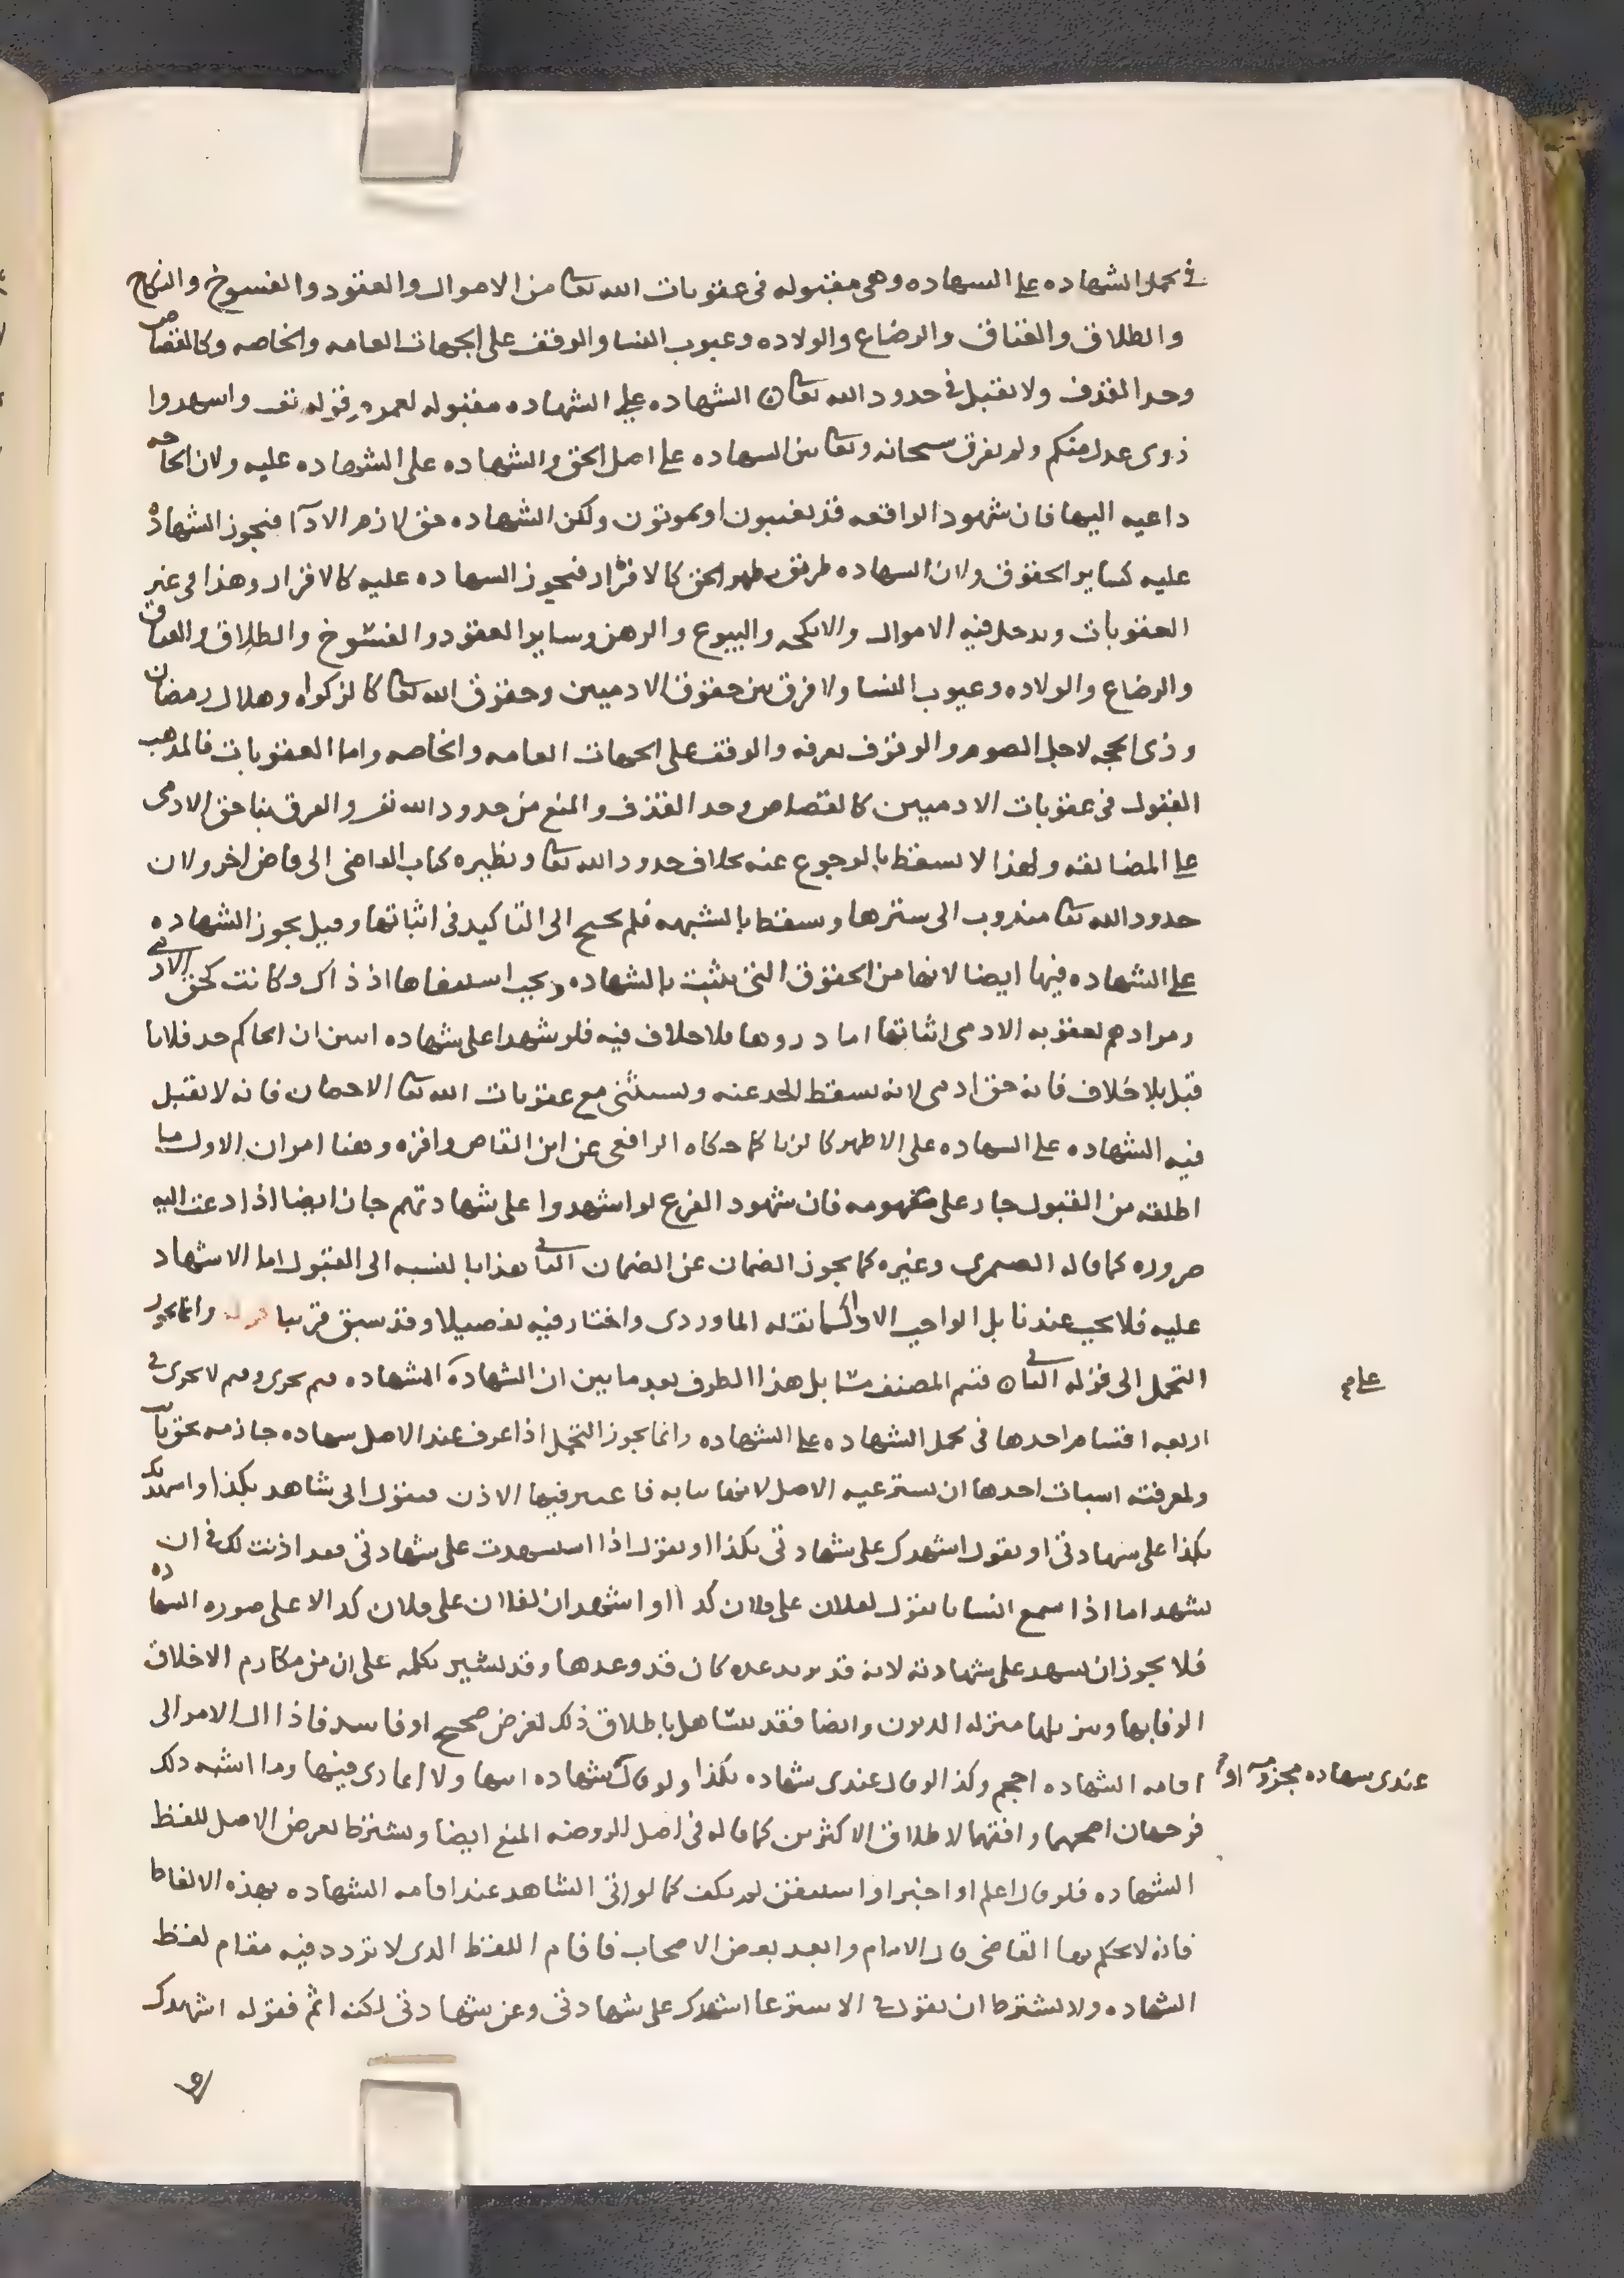 في تحمل الشهاده على الشهاده وهي مقبوله في عقوبات الله تعا من الاموال والعقود والفسوخ والنكاح
والطلاق والعتاق والرضاع والولاده وعيوب النسا والوقف على الجهات العامه والخاصه وكالقصاص
وحد القذف ولا تقبل في حدود الله تعا الشهاده على الشهاده مقبوله لعموم قوله تعـ واشهدوا
ذوى عدل منكم ولم يفرق سبحانه وتعا بين الشهاده على اصل الحق والشهاده على الشهاده عليه ولان الحاجه
داعيه اليها فان شهود الواقعه قد يغيبون او يموتون ولكن الشهاده حق لازم الادآ فتجوز الشهاده
عليه كساير الحقوق ولان الشهاده طريق يظهر الحق كالاقرار فتجوز الشهاده عليه كالاقرار وهذا في غير
العقوبات ويدخل فيه الاموال والانكحه والبيوع والرهن وساير العقود والفسوخ والطلاق والعتاق
والرضاع والولاده وعيوب النسا ولا فرق بين حقوق الادميين وحقوق الله تعا كالزكواه وهلال رمضان
وذى الحجه لاجل الصوم والوقوف بعرفه والوقف على الجهات العامه والخاصه واما العقوبات فالمذهب
القبول في عقوبات الادميين كالقصاص وحد القذف والمنع من حدود الله تعـ والفرق بنا حق الادمى
على المضايقه ولهذا لا يسقط بالرجوع عنه بخلاف حدود الله تعا ونظيره كتاب القاضى الى قاض اخر ولان
حدود الله تعا مندوب الى سترها ويسقط بالشبهه فلم يحتج الى التاكيد في اثباتها وقيل يجوز الشهاده
على الشهاده فيها ايضا لانها من الحقوق التى تثبت بالشهاده ويجب استيفاها اذ ذاك وكانت كحق الادمى
ومرادهم بعقوبه الادمى اثباتها اما دروها فلا خلاف فيه فلو شهدا على شهاده اثنين ان الحاكم حد فلانا
قبل بلا خلاف فانه حق ادمى لانه يسقط الحد عنه ويستثنى مع عقوبات الله تعا الاحصان فانه لا تقبل
فيه الشهاده على الشهاده على الاظهر كالزنا كما حكاه الرافعى عن ابن القاص واقره وهنا امران الاول ما
اطلقه من القبول جار على مفهومه فان شهود الفرع لو اشهدوا على شهادتهم جاز ايضا اذا دعت اليه
ضروره كما قاله الصيمرى وغيره كما يجوز الضمان عن الضمان الثانى هذا بالنسبه الى القبول اما الاشهاد
عليه فلا يجب عندنا بل الواجب الادا كما نقله الماوردى واختار فيه تفصيلا وقد سبق قريبا قوله وانما يجوز
التحمل الى قوله الثانى قسم المصنف مسايل هذا الطرف بعد ما بين ان الشهادة الشهاده فيم تجرى وفيم لا تجرى في
على
اربعه اقسام احدها في تحمل الشهاده على الشهاده وانما يجوز التحمل اذا عرف عند الاصل شهاده جازمه بحق ثابت
ولمعرفته اسباب احدها ان يسترعيه الاصل لانها نيابه فاعتبر فيها الاذن فيقول انى شاهد بكذا واشهدتك
بكذا على شهادتى او يقول اشهدك على شهادتى بكذا او يقول اذا استشهدت على شهادتى فقد اذنت لك في ان
تشهد اما اذا سمع انسانا يقول لفلان على فلان كذا او اشهد ان لفلان على فلان كذا لا على صوره الشهاده
فلا يجوز ان يشهد على شهادته لانه قد يريد عده كان قد وعدها وقد يشير بكلمه على ان من مكارم الاخلاق
الوفا بها وينزلها منزله الديون وايضا فقد يتساهل باطلاق ذلك لغرض صحيح او فاسد فاذا ال الامر الى
اقامه الشهاده احجم وكذا لو قال عندى شهاده بكذا ولو قال شهاده ابتها ولا اتمارى فيها وما اشبه ذلك
عندى شهاده مجزومه او
فوجهان اصحهما وافقهما لاطلاق الاكثرين كما قاله في اصل الروضه المنع ايضا ويشترط تعرض الاصل للفظ
الشهاده فلو قال اعلم او اخبر او استيقن لم يكف كما لو اتى الشاهد عند اقامه الشهاده بهذه الالفاظ
فانه لا يحكم بها القاضى قال الامام وابعد بعض الاصحاب فاقام اللفظ الذى لا تردد فيه مقام لفظ
الشهاده ولا يشترط ان يقول في الاسترعا اشهدك على شهادتى وعن شهادتى لكنه اتم فقوله اشهدك